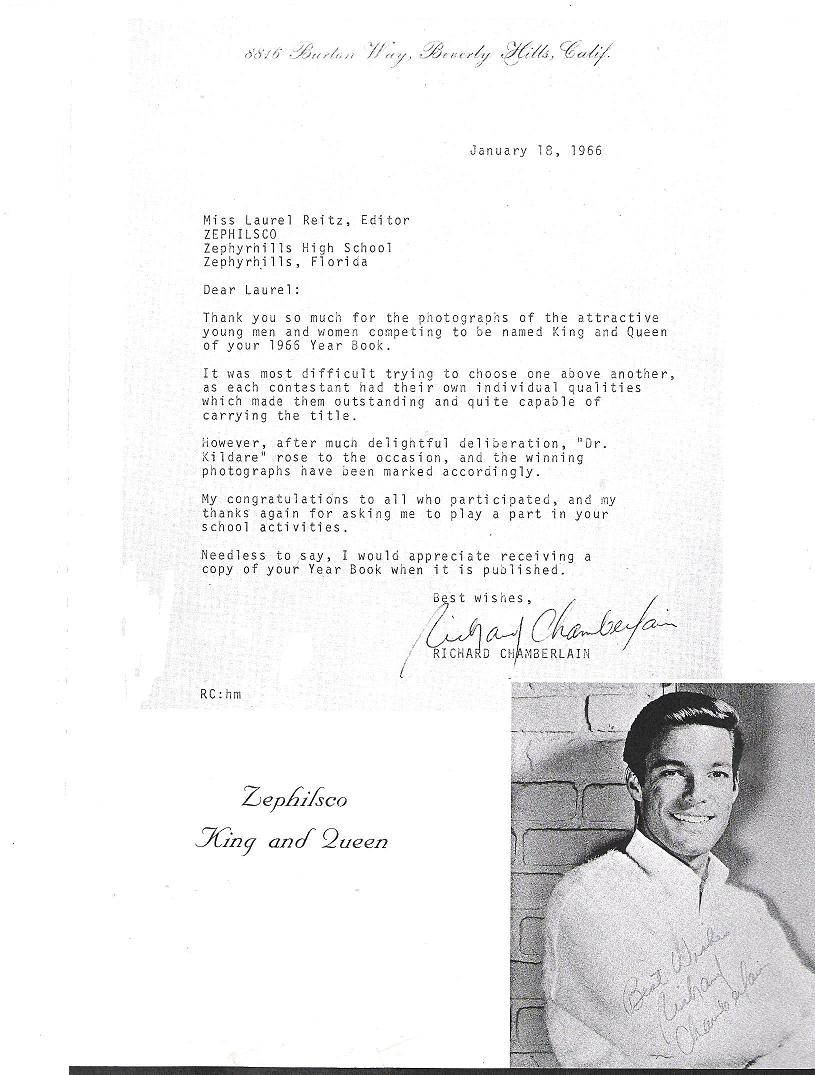 8816 Burton Way, Beverly Hills, Calif.
January 18, 1966
Miss Laurel Reitz, Editor
ZEPHILSCO
Zephyrhills High School
Zephyrhills, Florida
Dear Laurel:
Thank you so much for the photographs of the attractive
young men and women competing to be named King and Queen
of your 1966 Year Book.
It was most difficult trying to choose one above another,
as each contestant had their own individual qualities
which made them outstanding and quite capable of
carrying the title.
However, after much delightful deliberation, "Dr.
Kildare" rose to the occasion, and the winning
photographs have been marked accordingly.
My congratulations to all who participated, and my
thanks again for asking me to play a part in your
school activities.
Needless to say, I would appreciate receiving a
copy of your Year Book when it is published.
Best wishes,
Richard Chamberlain
RICHARD CHAMBERLAIN
RC:hm
Zephilsco
King and Queen
Best Wishes
Richard
Chamberlain